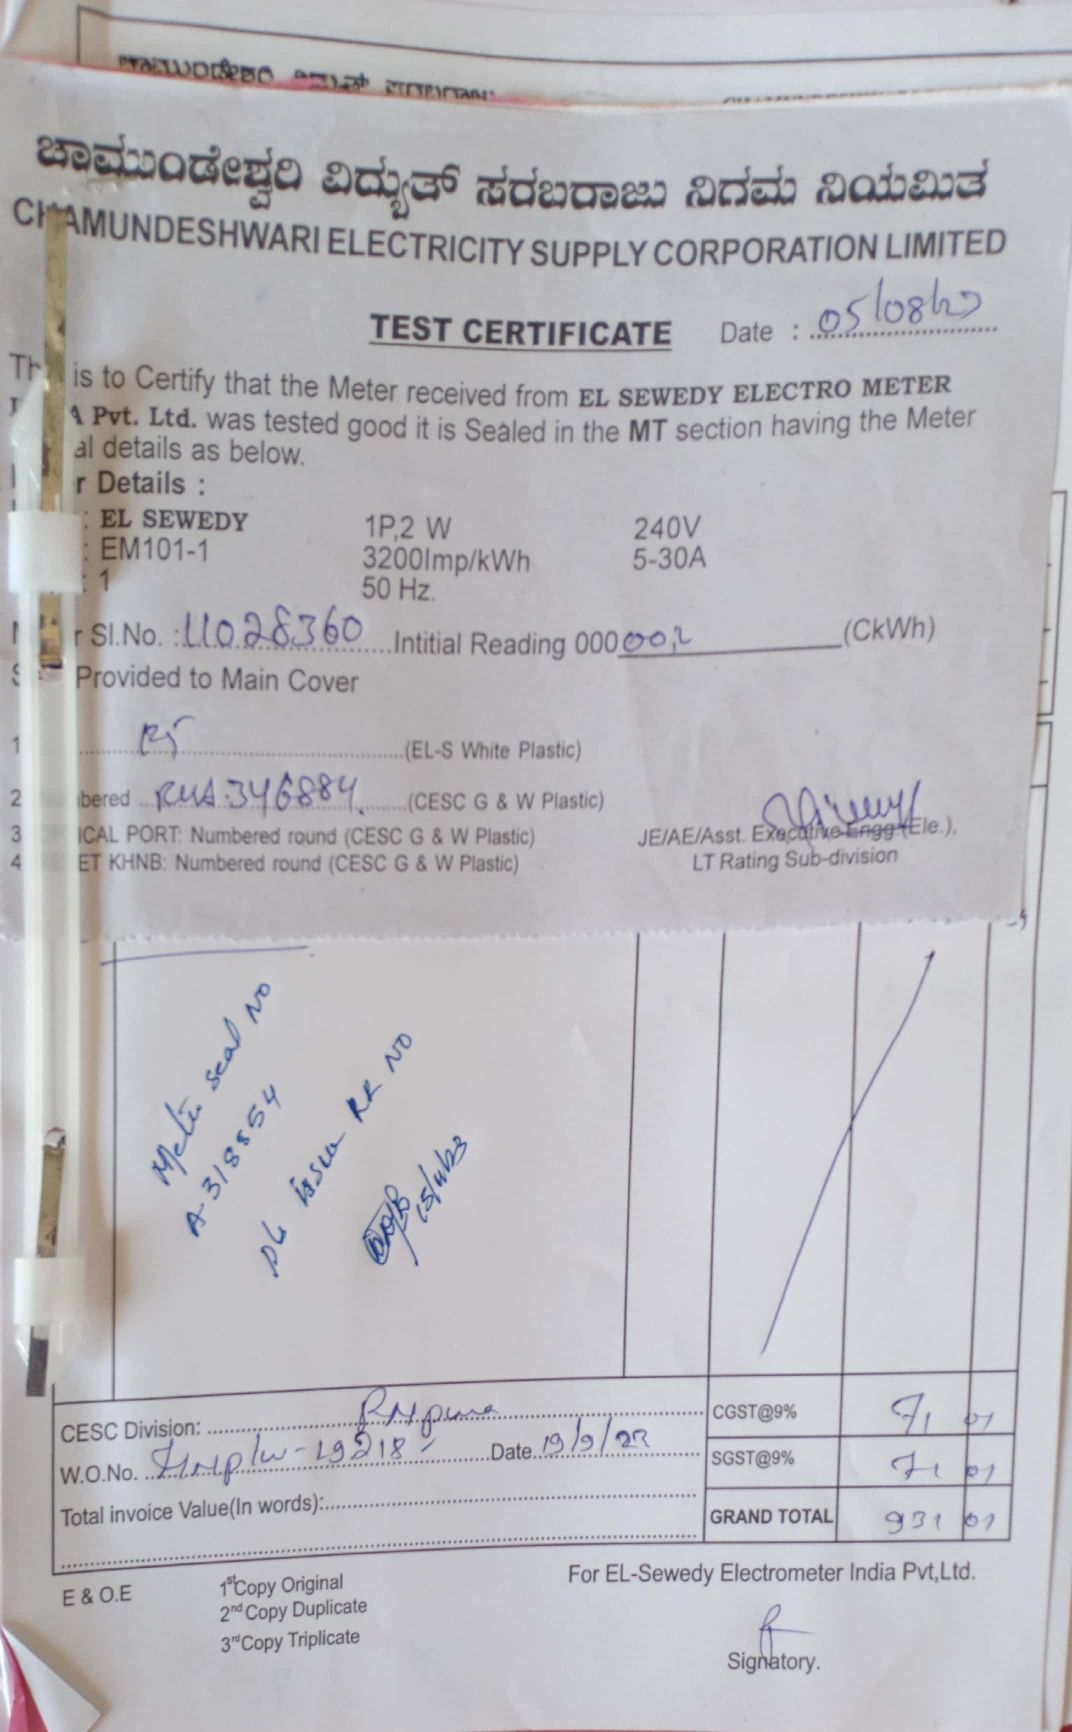 ಚಾಮುಂಡೇಶ್ವರಿ ವಿದ್ಯುತ್ ಸರಬರಾಜು ನಿಗಮ ನಿಯಮಿತ
CHAMUNDESHWARI ELECTRICITY SUPPLY CORPORATION LIMITED
TEST CERTIFICATE Date : 05/08/23
Th is to Certify that the Meter received from EL SEWEDY ELECTRO METER
A Pvt. Ltd. was tested good it is Sealed in the MT section having the Meter
al details as below.
r Details :
: EL SEWEDY 1P,2 W 240V
: EM101-1 3200Imp/kWh 5-30A
: 1 50 Hz.
r Sl.No. : 11028360 Intitial Reading 000 00,2 (CkWh)
Provided to Main Cover
1 (EL-S White Plastic)
2 bered 346884 (CESC G & W Plastic)
3 ICAL PORT: Numbered round (CESC G & W Plastic) JE/AE/Asst. Executive Engg.(Ele.),
4 ET KHNB: Numbered round (CESC G & W Plastic) LT Rating Sub-division
Meter seal NO
A-318554
issue RR NO
CESC Division: CGST@9% 71 01
W.O.No. Date 19/9/23 SGST@9% 71 01
Total invoice Value(In words): GRAND TOTAL 931 01
E & O.E 1st Copy Original For EL-Sewedy Electrometer India Pvt,Ltd.
2nd Copy Duplicate
3rd Copy Triplicate
Signatory.